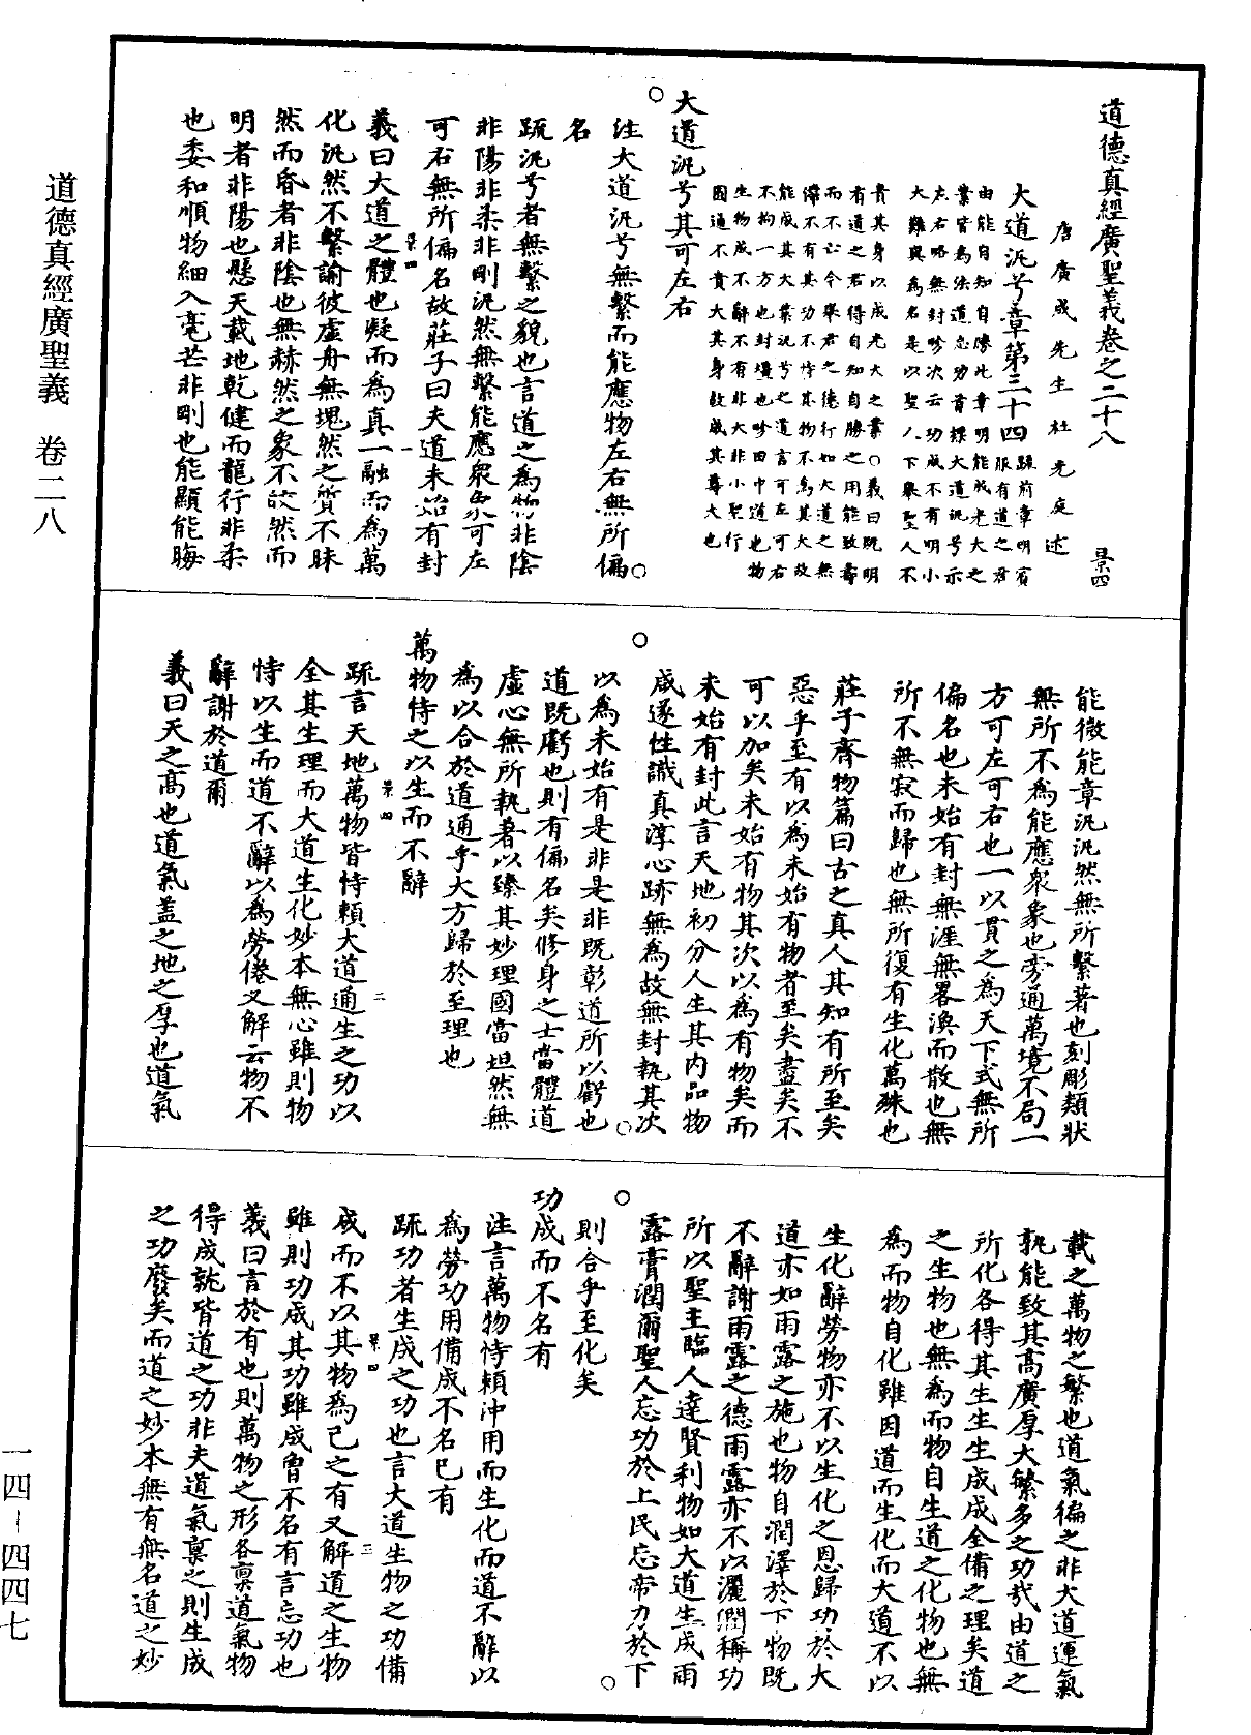 道德真經廣聖義卷之二十八　景四
唐廣成先生杜光庭述
大道汎兮章第三十四
疏前章明賓
服有道之君
由能自知自勝此章明能成光大之
業皆為法道忘功首標大道汎兮示
左右略無封畛次云功成不有明小
大難與為名是以聖人下舉聖人不
貴其身以成光大之業○義曰既明
有道之君得自知自勝之用能致壽
而不亡今舉君之德行如大道之無
滯不有其功不恃其物不為其大故
能成其大業汎兮之道言可左可右
不拘一方也封壃也畛田中道也物
生物成不辭不有非大非小聖行
圓通不貴大其身故成其尊大也
大道汎兮其可左右
○
注大道汎兮無繫而能應物左右無所偏
名
○
疏汎兮者無繫之貌也言道之為物非陰
非陽非柔非剛汎然無繫能應眾象可左
可右無所偏名故莊子曰夫道未始有封
景四　一
義曰大道之體也凝而為真一融而為萬
化汎然不繫諭彼虛舟無塊然之質不昧
然而昏者非陰也無赫然之象不皎然而
明者非陽也懸天載地乾健而龍行非柔
也委和順物細入毫芒非剛也能顯能晦
能微能章汎汎然無所繫著也刻彫類狀
無所不為能應眾象也旁通萬境不局一
方可左可右也一以貫之為天下式無所
偏名也未始有封無涯無畧渙而散也無
所不無寂而歸也無所復有生化萬殊也
莊子齊物篇曰古之真人其知有所至矣
惡乎至有以為未始有物者至矣盡矣不
可以加矣未始有物其次以為有物矣而
未始有封此言天地初分人生其內品物
咸遂性識真淳心跡無為故無封執其次
○
以為未始有是非是非既彰道所以虧也
○
道既虧也則有偏名矣修身之士當體道
虛心無所執著以臻其妙理國當坦然無
為以合於道通乎大方歸於至理也
萬物恃之以生而不辭
景四　二
疏言天地萬物皆恃賴大道通生之功以
全其生理而大道生化妙本無心雖則物
恃以生而道不辭以為勞倦又解云物不
辭謝於道爾
義曰天之高也道氣蓋之地之厚也道氣
載之萬物之繁也道氣徧之非大道運氣
孰能致其高廣厚大繁多之功哉由道之
所化各得其生生生成成全備之理矣道
之生物也無為而物自生道之化物也無
為而物自化雖因道而生化而大道不以
生化辭勞物亦不以生化之恩歸功於大
道亦如雨露之施也物自潤澤於下物既
不辭謝雨露之德雨露亦不以灑潤稱功
所以聖主臨人達賢利物如大道生成雨
露膏潤爾聖人忘功於上民忘帝力於下
○
則合乎至化矣
○
功成而不名有
注言萬物恃賴沖用而生化而道不辭以
為勞功用備成不名已有
疏功者生成之功也言大道生物之功備
景四　三
成而不以其物為己之有又解道之生物
雖則功成其功雖成曾不名有言忘功也
義曰言於有也則萬物之形各稟道氣物
得成就皆道之功非夫道氣稟之則生成
之功廢矣而道之妙本無有無名道之妙
道德真經廣聖義　卷二八
一四－四四七